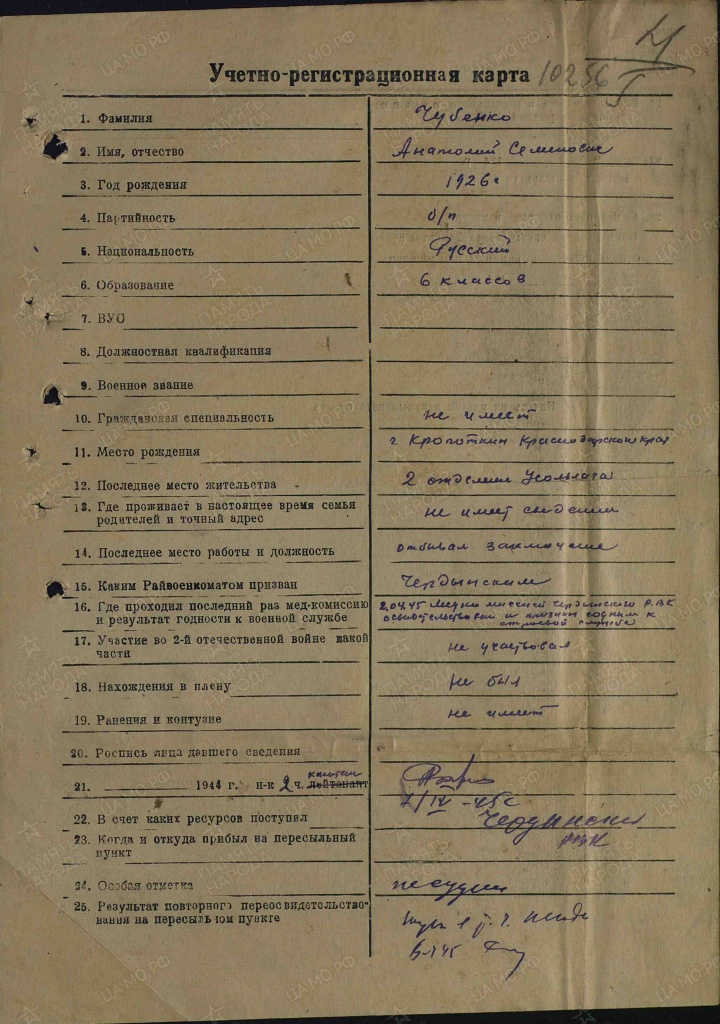 Учетно-регистрационная карта 10256
1. Фамилия Чубенко
2. Имя, отчество Анатолий Семенович
3. Год рождения 1926 г
4. Партийность б/п
5. Национальность Русский
6. Образование 6 классов
7. ВУС
8. Должностная квалификация
9. Военное звание
10. Гражданская специальность не имеет
11. Место рождения г Кропоткин Краснодарского края
12. Последнее место жительства 2 отделение Усольлага
13. Где проживает в настоящее время семья
родителей и точный адрес не имеет сведений
14. Последнее место работы и должность отбывал заключение
15. Каким Райвоенкоматом призван Чердынским
16. Где проходил последний раз мед-комиссию 2.04.45 Чердынского РВК
и результат годности к военной службе и признан годным к
строевой службе
17. Участие во 2-й отечественной войне какой
части не участвовал
18. Нахождения в плену не был
19. Ранения и контузие не имеет
20. Роспись лица давшего сведения
21. 1944 г. н-к 2 ч. лейтенант капитан
7/IV-45г
22. В счет каких ресурсов поступил Чердынский
РВК
23. Когда и откуда прибыл на пересыльный
пункт
24. Особая отметка
25. Результат повторного переосвидетельство-
вания на пересыльном пункте